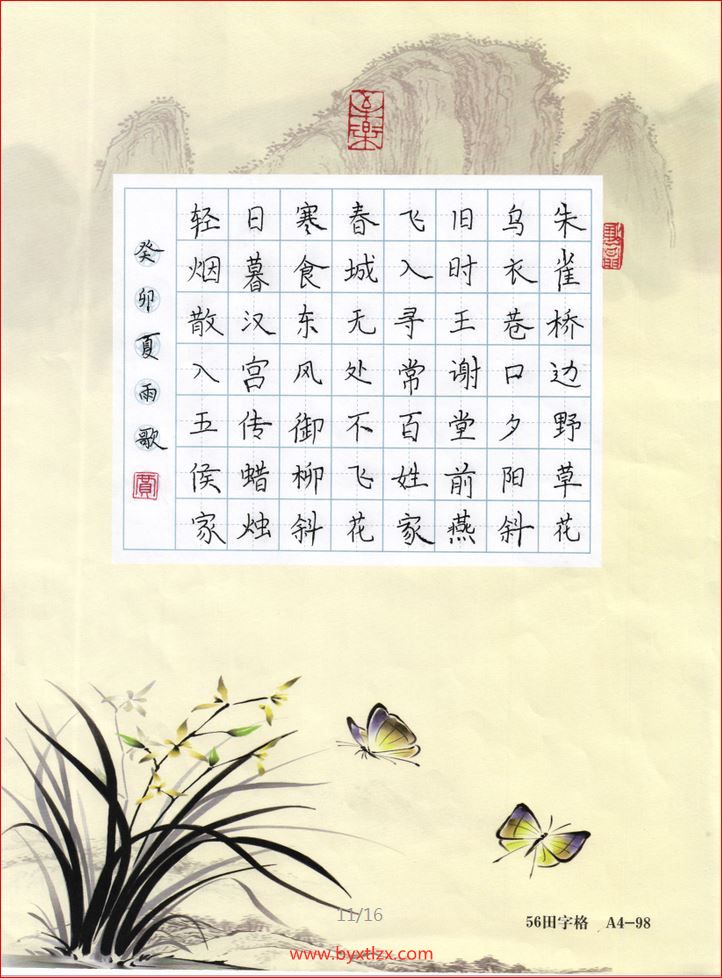 朱雀桥边野草花
乌衣巷口夕阳斜
旧时王谢堂前燕
飞入寻常百姓家
春城无处不飞花
寒食东风御柳斜
日暮汉宫传蜡烛
轻烟散入五侯家
癸卯夏雨歌
11/16
56田字格 A4-98
www.byxtlzx.com